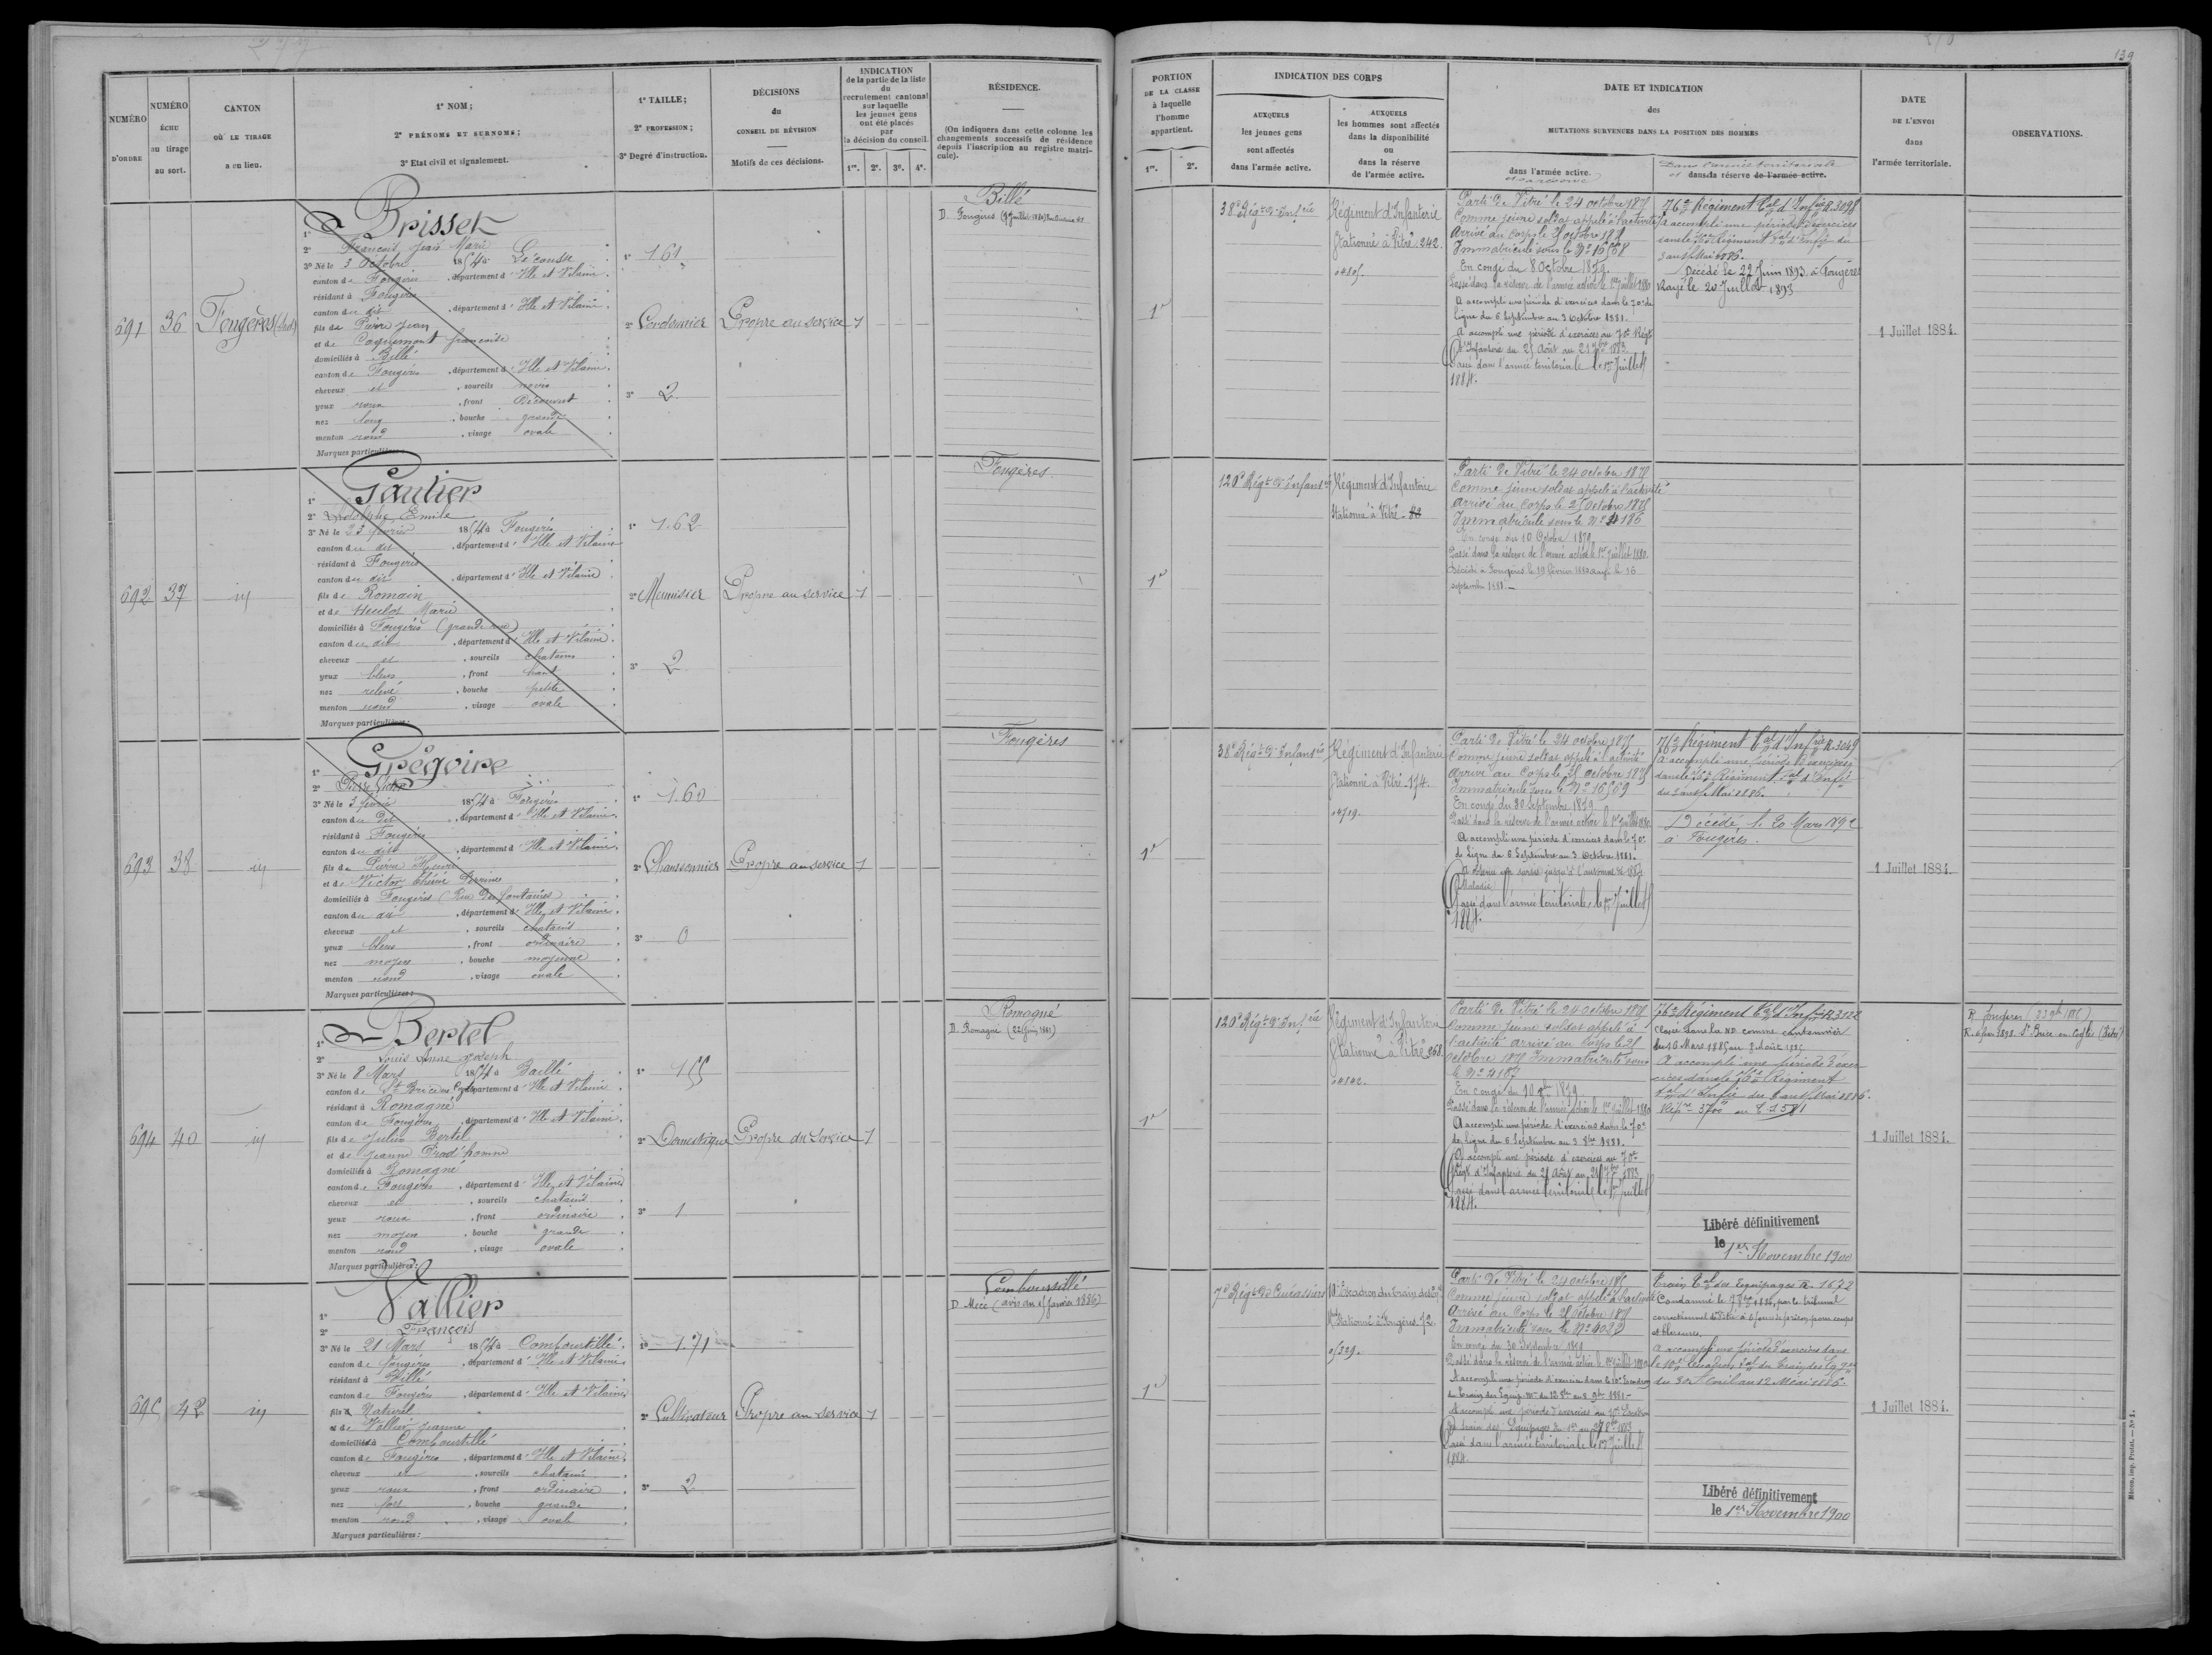 139
NUMÉRO D'ORDRE
NUMÉRO ÉCHU au tirage au sort.
CANTON OÙ LE TIRAGE a eu lieu.
1° NOM;
2° PRÉNOMS ET SURNOMS;
3° Etat civil et signalement.
1° TAILLE;
2° PROFESSION;
3° Degré d'instruction.
DÉCISIONS du CONSEIL DE RÉVISION
Motifs de ces décisions.
INDICATION
de la partie de la liste
du
recrutement cantonal
sur laquelle
les jeunes gens
ont été placés
par
la décision du conseil.
1re. 2e. 3e. 4e.
RÉSIDENCE.
(On indiquera dans cette colonne les
changements successifs de résidence
depuis l'inscription au registre matri-
cule).
PORTION
DE LA CLASSE
à laquelle
l'homme
appartient.
1re. 2e.
INDICATION DES CORPS
AUXQUELS
les jeunes gens
sont affectés
dans l'armée active.
AUXQUELS
les hommes sont affectés
dans la disponibilité
ou
dans la réserve
de l'armée active.
DATE ET INDICATION
des
MUTATIONS SURVENUES DANS LA POSITION DES HOMMES
dans l'armée active.
et sa réserve
Dans l'armée territoriale
et dans sa réserve de l'armée active.
DATE
DE L'ENVOI
dans
l'armée territoriale.
OBSERVATIONS.
691
36
Fougères (Sud)
1° Brisset
2° François Jean Marie
3° Né le 3 Octobre 1854 à Lécousse
canton de Fougères, département d'Ille et Vilaine.
résidant à Fougères
canton du dit, département d'Ille et Vilaine.
fils de Pierre Jean
et de Françoise
domiciliés à Billé
canton de Fougères, département d'Ille et Vilaine.
cheveux et, sourcils noirs
yeux roux, front Découvert
nez long, bouche grande
menton rond, visage ovale
Marques particulières:
1° 1.61
2° Cordonnier
3° 2
Propre au service
1
Billé
D. Fougères
1re
38e Régt d'Infrie
Régiment d'Infanterie
Stationné à Vitré. 242.
Parti de Vitré le 24 octobre 1875
Comme jeune soldat appelé à l'activité
Arrivé au Corps le 25 octobre 1875
Immatriculé sous le N° 16568
En congé du 8 Octobre 1879.
Passé dans la réserve de l'armée active le 1er Juillet 1880
A accompli une période d'exercices dans le 70e de
ligne du 6 Septembre au 3 Octobre 1881.
A accompli une période d'exercices au 70e Régt
d'Infanterie du 25 Août au 21 7bre 1883
Passé dans l'armée territoriale le 1er Juillet
1884.
76e Régiment Tal d'Infrie R. 3098
A accompli une période d'exercices
dans le 76e Régiment Tal d'Infrie du
3 au 15 Mai 1886.
Décédé le 22 Juin 1893 à Fougères
Rayé le 20 Juillet 1893
1 Juillet 1884.
692
37
id
1° Gautier
2° Adolphe Emile
3° Né le 23 février 1854 à Fougères
canton du dit, département d'Ille et Vilaine
résidant à Fougères
canton du dit, département d'Ille et Vilaine
fils de Romain
et de Heulot Marie
domiciliés à Fougères (grande rue)
canton du dit, département d'Ille et Vilaine.
cheveux et, sourcils chatains
yeux bleus, front haut
nez relevé, bouche petite
menton rond, visage ovale
Marques particulières:
1° 1.62
2° Menuisier
3° 2
Propre au service
1
Fougères
1re
120e Régt d'Infanterie
Régiment d'Infanterie
Stationné à Vitré
Parti de Vitré le 24 octobre 1875
Comme jeune soldat appelé à l'activité
Arrivé au Corps le 25 Octobre 1875
Immatriculé sous le N° 4186
En congé du 10 Octobre 1879
Passé dans la réserve de l'armée active le 1er Juillet 1880.
Décédé à Fougères le 19 février 1880 rayé le 16
septembre 1881.
693
38
id
1° Grégoire
2° Pierre Victor
3° Né le 3 février 1854 à Fougères
canton du dit, département d'Ille et Vilaine.
résidant à Fougères
canton du dit, département d'Ille et Vilaine.
fils de Pierre Henri
et de Victor Thérèse Perrine
domiciliés à Fougères (Rue des fontaines)
canton du dit, département d'Ille et Vilaine.
cheveux et, sourcils chatains
yeux bleus, front ordinaire
nez moyen, bouche moyenne
menton rond, visage ovale
Marques particulières:
1° 1.60
2° Chaussonnier
3° 0
Propre au service
1
Fougères
1re
38e Régt d'Infanterie
Régiment d'Infanterie
Stationné à Vitré. 174.
Parti de Vitré le 24 octobre 1875
Comme jeune soldat appelé à l'activité
Arrivé au Corps le 25 octobre 1875
Immatriculé sous le N° 16569
En congé du 30 Septembre 1879
Passé dans la réserve de l'armée active le 1er Juillet 1880
A accompli une période d'exercices dans le 70e
de Ligne du 6 Septembre au 3 Octobre 1881.
A obtenu un sursis jusqu'à l'automne de 1884
Maladie
Passé dans l'armée territoriale le 1er Juillet
1884.
76e Régiment Tal d'Infrie R. 3049
A accompli une période d'exercices
dans le 76e Régiment Tal d'Infrie
du 3 au 15 Mai 1886.
Décédé le 20 Mars 1892
à Fougères.
1 Juillet 1884.
694
40
id
1° Bertel
2° Louis Anne Joseph
3° Né le 8 Mars 1854 à Baillé
canton de St Brice en Cogles, département d'Ille et Vilaine.
résidant à Romagné
canton de Fougères, département d'Ille et Vilaine.
fils de Julien Bertel
et de Jeanne Prud'homme
domiciliés à Romagné
canton de Fougères, département d'Ille et Vilaine
cheveux et, sourcils chatains
yeux roux, front ordinaire
nez moyen, bouche grande
menton rond, visage ovale
Marques particulières:
1° 1.55
2° Domestique
3° 1
Propre au Service
1
Romagné
D. Romagné (22 Juin 1881)
1re
120e Régt d'Infrie
Régiment d'Infanterie
Stationné à Vitré 268.
Parti de Vitré le 24 octobre 1875
Comme jeune soldat appelé à
l'activité arrivé au Corps le 25
Octobre 1875 Immatriculé sous
le N° 4187
En congé du 10 8bre 1879
Passé dans la réserve de l'armée active le 1er Juillet 1880
A accompli une période d'exercices dans le 70e
de ligne du 6 Septembre au 3 8bre 1881.
A accompli une période d'exercices au 70e
Régt d'Infanterie du 25 Août au 21 7bre 1883
Passé dans l'armée territoriale le 1er Juillet
1884.
76e Régiment Tal d'Infrie R 3122
Classé dans la ND comme cantonnier
du 16 Mars 1885 au 8 Août 1885
A accompli une période d'exer-
cices dans le 76e Régiment
Tal d'Infrie du 3 au 15 Mai 1886.
Libéré définitivement
le 1er Novembre 1900
1 Juillet 1884.
R. Fougères
695
42
id
1° Vallier
2° François
3° Né le 21 Mars 1854 à Combourtillé
canton de Fougères, département d'Ille et Vilaine
résidant à Billé
canton de Fougères, département d'Ille et Vilaine
fils Naturel
et de Vallier Jeanne
domicilié à Combourtillé
canton de Fougères, département d'Ille et Vilaine.
cheveux et, sourcils chatains
yeux roux, front ordinaire
nez fort, bouche grande
menton rond, visage ovale
Marques particulières:
1° 1.71
2° Cultivateur
3° 2
Propre au service
1
Combourtillé
D. Mecé (avis du 15 Janvier 1886)
1re
7e Régt de Cuirassiers
10e Escadron du train des Eq.
Stationné à Fougères. 72.
Parti de Vitré le 24 octobre 1875
Comme jeune soldat appelé à l'activité
Arrivé au Corps le 25 Octobre 1875
Immatriculé sous le N° 4023
En congé du 30 Septembre 1879
Passé dans la réserve de l'armée active le 1er Juillet 1880
A accompli une période d'exercices dans le 10e Escadron
du Train des Equip.
A accompli une période d'exercices au 10e Escadron
du train des Equipages
Passé dans l'armée territoriale le 1er Juillet
1884.
Train Tal des Equipages R. 1672
Condamné le par le tribunal
correctionnel de Vitré à 6 jours de prison, pour coups
et blessures.
A accompli une période d'exercices dans
le 10e Escadron Tal du Train des Eq.
du 30 Avril au 12 Mai 1886.
Libéré définitivement
le 1er Novembre 1900
1 Juillet 1884.